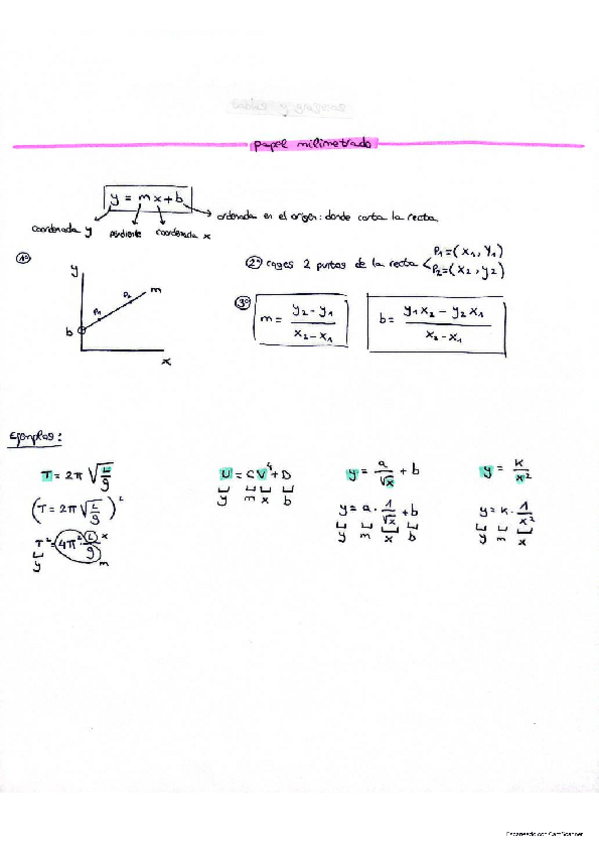 papel milimetrado
y = mx+b
ordenada en el origen: donde corta la recta.
coordenada y pendiente coordenada x
1º
y
m
P1 P2
b
x
2º coges 2 puntos de la recta P1=(x1, y1)
P2=(x2, y2)
3º m = (y2 - y1) / (x2 - x1)
b = (y1x2 - y2x1) / (x2 - x1)
Ejemplos:
T = 2π √(L/g)
(T = 2π √(L/g))²
T² = 4π² · L/g x
y m
U = CV⁴ + D
y m x b
y = a/√x + b
y = a · 1/√x + b
y m x b
y = K/x²
y = K · 1/x²
y m x
Escaneado con CamScanner